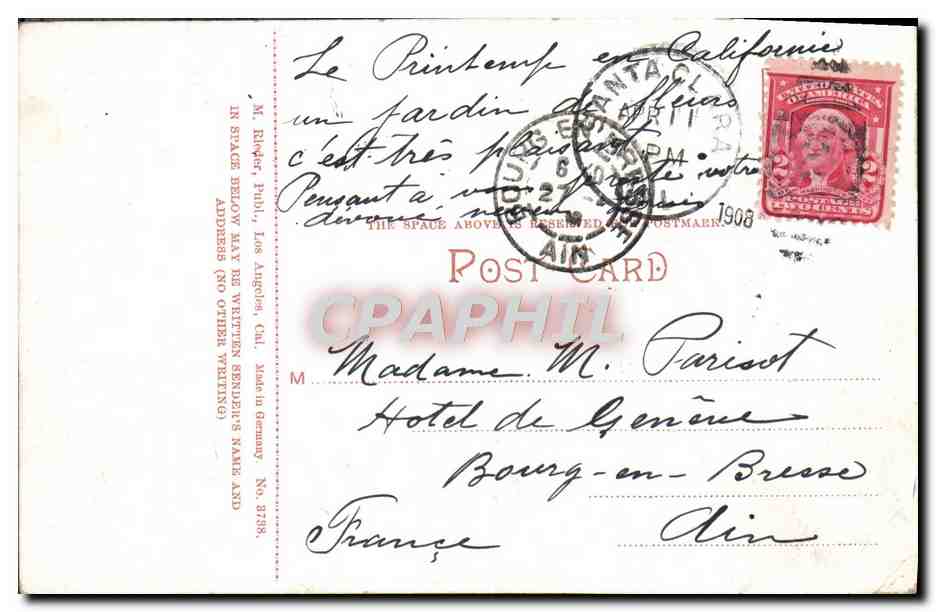 Le Printemps en Californie
un jardin de fleurs
c'est très plaisant
Pensant à vous votre
devoué
SANTA CLARA
APR 11
PM
1908
BOURG-EN-BRESSE
6
27
AIN
UNITED STATES
OF AMERICA
2 2
POSTAGE
TWO CENTS
THE SPACE ABOVE IS RESERVED POSTMARK
POST CARD
CPAPHIL
M Madame M. Parisot
Hotel de Genève
Bourg-en-Bresse
Ain
France
M. Rieder, Publ., Los Angeles, Cal. Made in Germany. No. 3738.
IN SPACE BELOW MAY BE WRITTEN SENDER'S NAME AND
ADDRESS (NO OTHER WRITING)